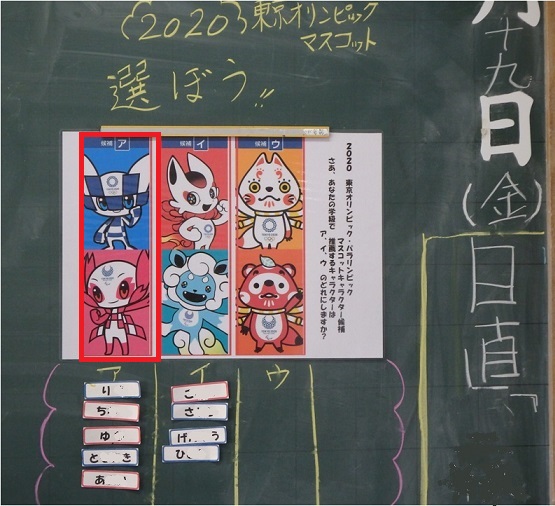 2020 東京オリンピック
マスコット
選ぼう!!
月
十九日(金)
日直
候補 ア
候補 イ
候補 ウ
2020 東京オリンピック・パラリンピック
マスコットキャラクター候補
さあ、あなたの学級で 推薦するキャラクターは
ア、イ、ウ のどれにしますか?
ア イ ウ
り
ち
ゆ
と き
あ
こ
さ
げ う
ひ